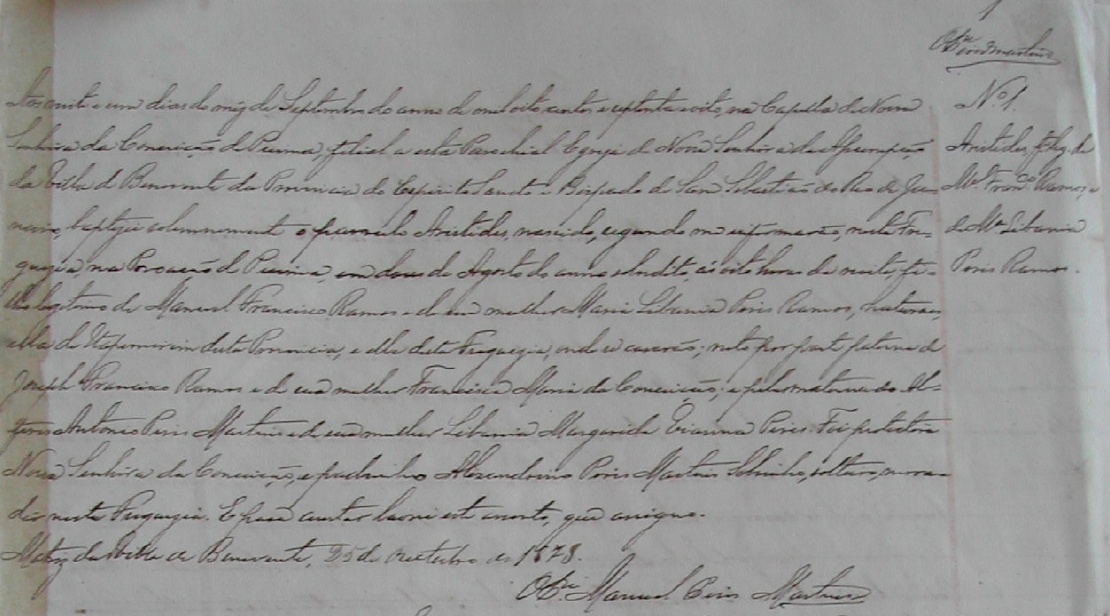 Pires Martins
Aos vinte e um dias do mez de Septembro do anno de mil oito centos e septenta e oito, na Capella de Nossa
Senhora da Conceição de Piuma, filial a esta Parochial Egreja de Nossa Senhora da Assumpção
da Villa de Benevente da Provincia do Espirito Sancto e Bispado de San Sebastião do Rio de Ja-
neiro, baptizei solemnemente o parvulo Aristides, nascido, segundo me informarão, nesta Fre-
guezia, na Povoação de Piuma, em dous de Agosto do anno, ás oito horas da noite, fi-
lho legitimo de Manuel Francisco Ramos e de sua mulher Maria Libania Peris Ramos, naturaes,
ella de Itapemirim desta Provincia, e elle desta Freguezia, onde se casarão; neto por parte paterna de
Joseph Francisco Ramos e de sua mulher Francisca Maria da Conceição; e pela materna do Al-
feres Antonio Peris Martins e de sua mulher Libania Margarida Vianna Peres. Foi protectora
Nossa Senhora da Conceição, e padrinho Alexandrino Peris Martins Sobrinho, solteiro, mora-
dor nesta Freguezia. E para constar lavrei este assento, que assigno.
Matriz da Villa de Benevente, 25 de Outubro de 1878.
Manuel Peris Martins
Nº 1.
Aristides, f. leg. de
Mel. Franco. Ramos, e
de Ma. Libania
Peris Ramos.